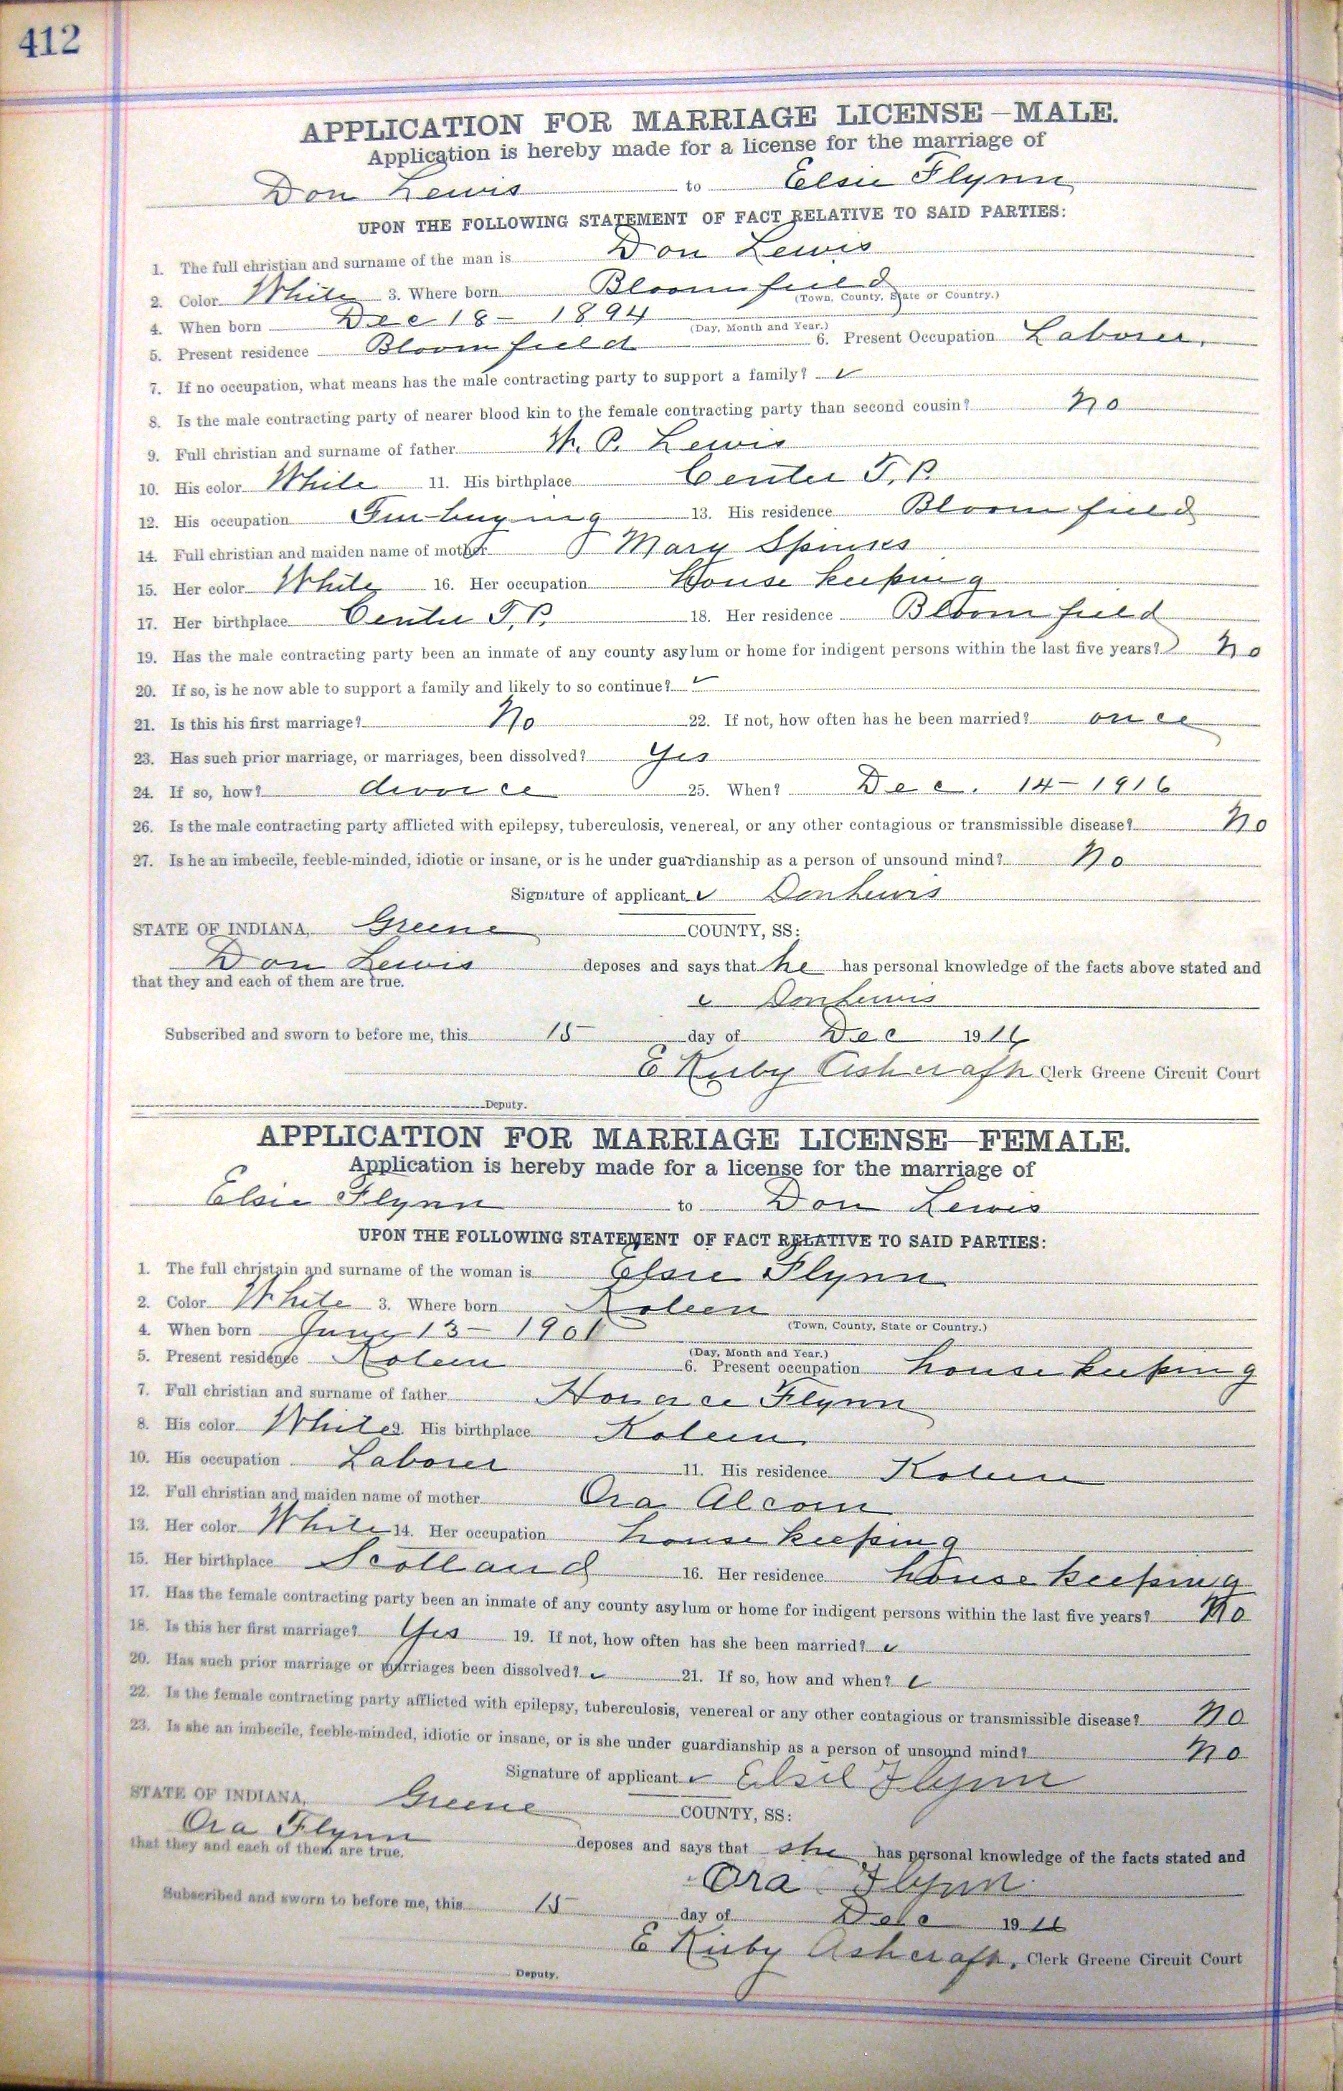 412
APPLICATION FOR MARRIAGE LICENSE—MALE.
Application is hereby made for a license for the marriage of
Don Lewis to Elsie Flynn
UPON THE FOLLOWING STATEMENT OF FACT RELATIVE TO SAID PARTIES:
1. The full christian and surname of the man is Don Lewis
2. Color White 3. Where born Bloomfield
(Town, County, State or Country.)
4. When born Dec 18 - 1894
(Day, Month and Year.)
5. Present residence Bloomfield 6. Present Occupation Laborer.
7. If no occupation, what means has the male contracting party to support a family? ✓
8. Is the male contracting party of nearer blood kin to the female contracting party than second cousin? No
9. Full christian and surname of father W. P. Lewis
10. His color White 11. His birthplace Center T.P.
12. His occupation Fur-buying 13. His residence Bloomfield
14. Full christian and maiden name of mother Mary Spinks
15. Her color White 16. Her occupation House keeping
17. Her birthplace Center T.P. 18. Her residence Bloomfield
19. Has the male contracting party been an inmate of any county asylum or home for indigent persons within the last five years? No
20. If so, is he now able to support a family and likely to so continue? ✓
21. Is this his first marriage? No 22. If not, how often has he been married? once
23. Has such prior marriage, or marriages, been dissolved? Yes
24. If so, how? divorce 25. When? Dec. 14 - 1916
26. Is the male contracting party afflicted with epilepsy, tuberculosis, venereal, or any other contagious or transmissible disease? No
27. Is he an imbecile, feeble-minded, idiotic or insane, or is he under guardianship as a person of unsound mind? No
Signature of applicant ✓ Don Lewis
STATE OF INDIANA, Greene COUNTY, SS:
Don Lewis deposes and says that he has personal knowledge of the facts above stated and
that they and each of them are true.
✓ Don Lewis
Subscribed and sworn to before me, this 15 day of Dec 1916
E Kirby Ashcraft Clerk Greene Circuit Court
Deputy.
APPLICATION FOR MARRIAGE LICENSE—FEMALE.
Application is hereby made for a license for the marriage of
Elsie Flynn to Don Lewis
UPON THE FOLLOWING STATEMENT OF FACT RELATIVE TO SAID PARTIES:
1. The full christain and surname of the woman is Elsie Flynn
2. Color White 3. Where born Koleen
(Town, County, State or Country.)
4. When born June 13 - 1901
(Day, Month and Year.)
5. Present residence Koleen 6. Present occupation house keeping
7. Full christian and surname of father Horace Flynn
8. His color White 9. His birthplace Koleen
10. His occupation Laborer 11. His residence Koleen
12. Full christian and maiden name of mother Ora Alcorn
13. Her color White 14. Her occupation house keeping
15. Her birthplace Scotland 16. Her residence house keeping
17. Has the female contracting party been an inmate of any county asylum or home for indigent persons within the last five years? No
18. Is this her first marriage? Yes 19. If not, how often has she been married? ✓
20. Has such prior marriage or marriages been dissolved? ✓ 21. If so, how and when? ✓
22. Is the female contracting party afflicted with epilepsy, tuberculosis, venereal or any other contagious or transmissible disease? No
23. Is she an imbecile, feeble-minded, idiotic or insane, or is she under guardianship as a person of unsound mind? No
Signature of applicant ✓ Elsie Flynn
STATE OF INDIANA, Greene COUNTY, SS:
Ora Flynn deposes and says that she has personal knowledge of the facts stated and
that they and each of them are true.
Ora Flynn
Subscribed and sworn to before me, this 15 day of Dec 1916
E Kirby Ashcraft, Clerk Greene Circuit Court
Deputy.